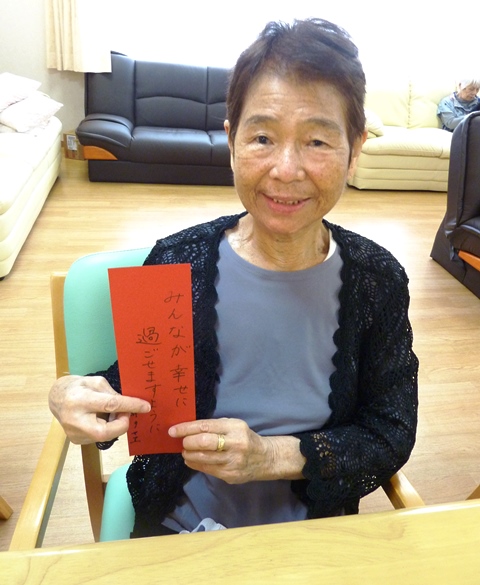 みんなが幸せに
過ごせますように